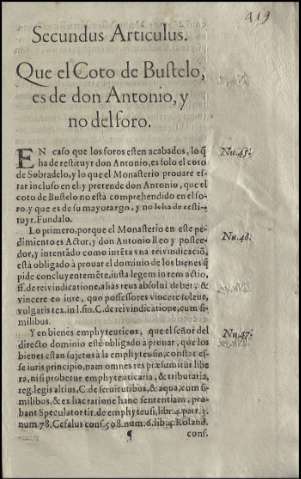 419
Secundus Articulus.
Que el Coto de Bustelo,
es de don Antonio, y
no del foro.
EN caso que los foros esten acabados, lo q̃
ha de restituyr don Antonio, es solo el coto
de Sobradelo, y lo que el Monasterio prouare es-
tar incluso en el: y pretende don Antonio, que el
coto de Bustelo no está comprehendido en el fo-
ro, y que es de su mayorazgo, y no le ha de resti-
tuyr. Fundalo.
Nu. 45.
Lo primero, porque el Monasterio en este pe-
dimiento es Actor, y don Antonio Reo y posee-
dor, y intentado como intēta vna reiuindicació,
está obligado à prouar el dominio de los bienes q̃
pide concluyentemēte, iusta legens in rem actio,
ff. de reiuindicatione, alias reus absolui debet, &
vincere in iure, quo possessores vincere solent,
vulgaris tex. in l. fin. C. de reiuindicatione, cum si-
milibus.
Nu. 46.
Y en bienes emphyteuticos, que el señor del
directo dominio esté obligado a prouar, que los
bienes estan sujetos à la emphyteusin, constat es-
se iuris principio, nam omnes res præsumitur libe
ra, nisi probetur emphyteuticaria, & tributaria,
reg. legis altius, C. de seruitutibus, & aqua, cum si-
milibus, & ex hac ratione hanc sententiam, pro-
bant Speculator tit. de emphyteusi, lib. 4. part. 3.
num. 78. Cefalus cons. 598. num. 6. lib. 4. Roland.
Nu. 47.
¶
cons.